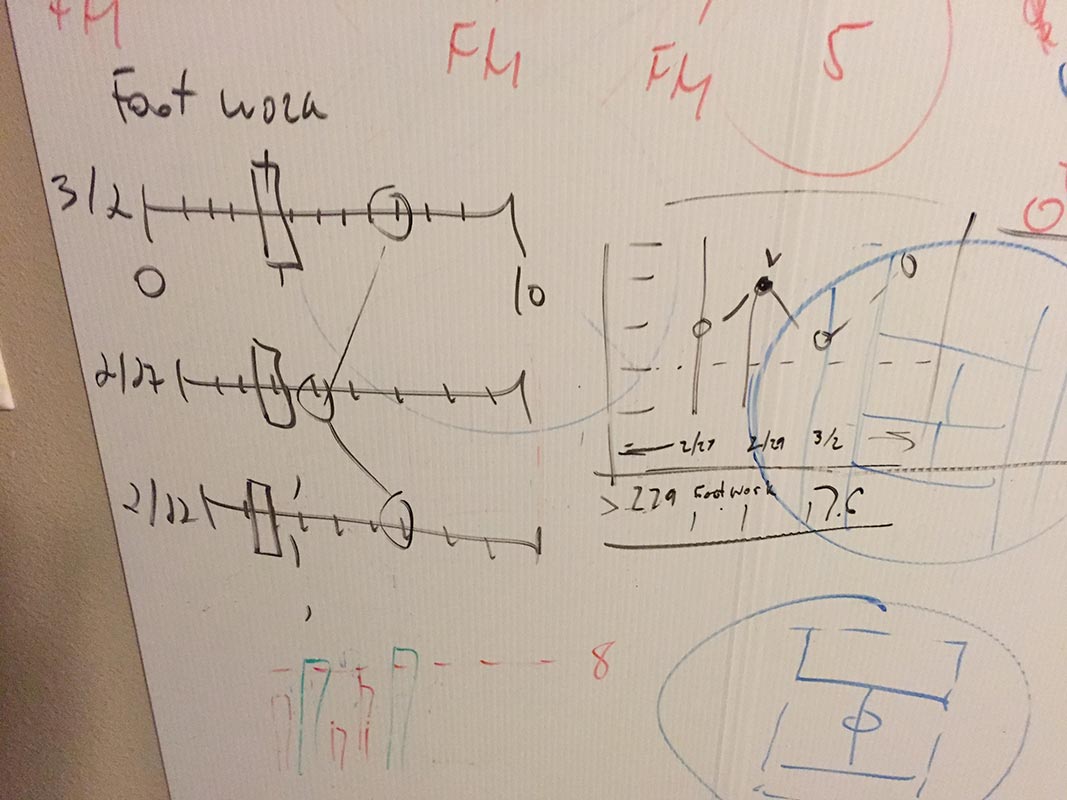 FM
FM
FM
5
Foot work
3/2
0
10
2/27
2/22
2/27 2/29 3/2
> 229 Footwork 17.6
8